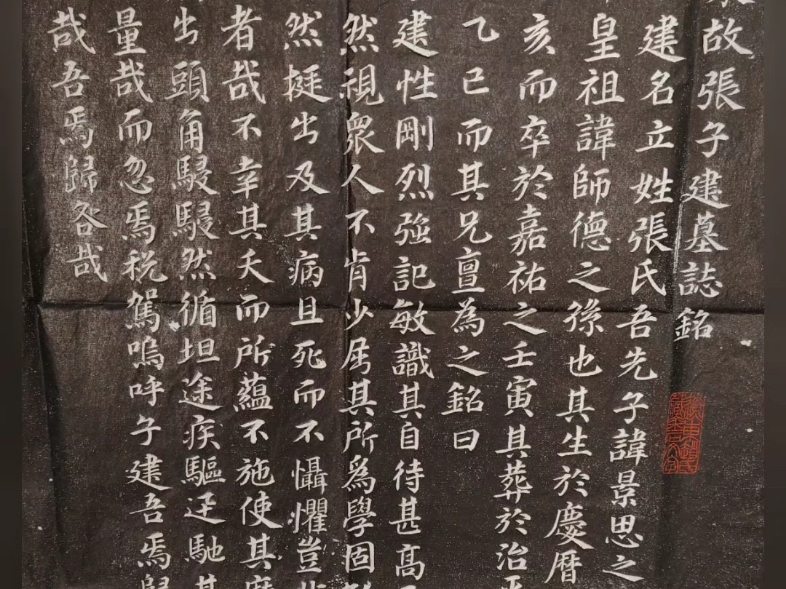 故張子建墓誌銘
建名立姓張氏吾先子諱景思之
皇祖諱師德之孫也其生於慶曆
亥而卒於嘉祐之壬寅其葬於治平
乙巳而其兄亶為之銘曰
建性剛烈強記敏識其自待甚高
然視衆人不肯少屈其所為學固
然挺出及其病且死而不懾懼豈
者哉不幸其夭而所蘊不施使其
出頭角駸駸然循坦途疾驅迅馳其
量哉而忽焉税駕嗚呼子建吾焉歸
哉吾焉歸咎哉